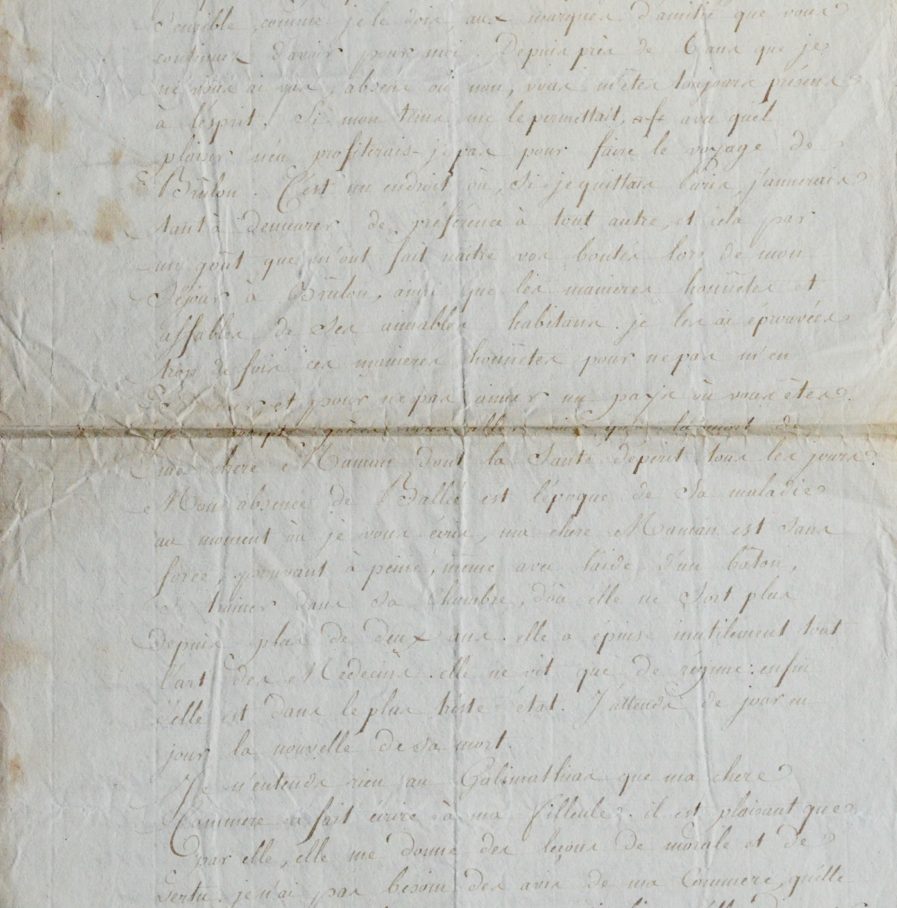 Sensible, comme je le dois aux marques d'amitié que vous
continuez d'avoir pour moi. Depuis près de 6 ans que je
ne vous ai vus, absens ou non, vous m'êtes toujours présens
à l'esprit. Si mon tems me le permettait, avec quel
plaisir n'en profiterais-je pas pour faire le voyage de
Brûlon. C'est un endroit où, si je quittais Paris, j'aimerais
tant à demeurer de préférence à tout autre, et cela par
un goût que m'ont fait naître vos bontés lors de mon
Séjour à Brûlon, ainsi que les manieres honnêtes et
affables de Ses aimables habitans. je les ai éprouvées
trop de fois ces manieres honnêtes pour ne pas m'en
et pour ne pas aimer un pays où vous êtes.
la mort de
ma chere Maman dont la Santé déperit tous les jours.
Mon absence de Ballée est l'époque de Sa maladie
au moment où je vous écris, ma chere Maman est sans
force, pouvant à peine, même avec l'aide d'un bâton,
se trainer dans Sa Chambre, d'où elle ne Sort plus
depuis plus de deux ans. elle a épuisé inutilement tout
l'art des Médecins. elle ne vit que de régime: enfin
elle est dans le plus triste état. J'attends de jour en
jour la nouvelle de Sa mort.
Je n'entends rien au Galimathias que ma chere
Commere a fait écrire à ma filleule. il est plaisant que
par elle, elle me donne des leçons de morale et de
vertu. je n'ai pas besoin des avis de ma Commere, qu'elle